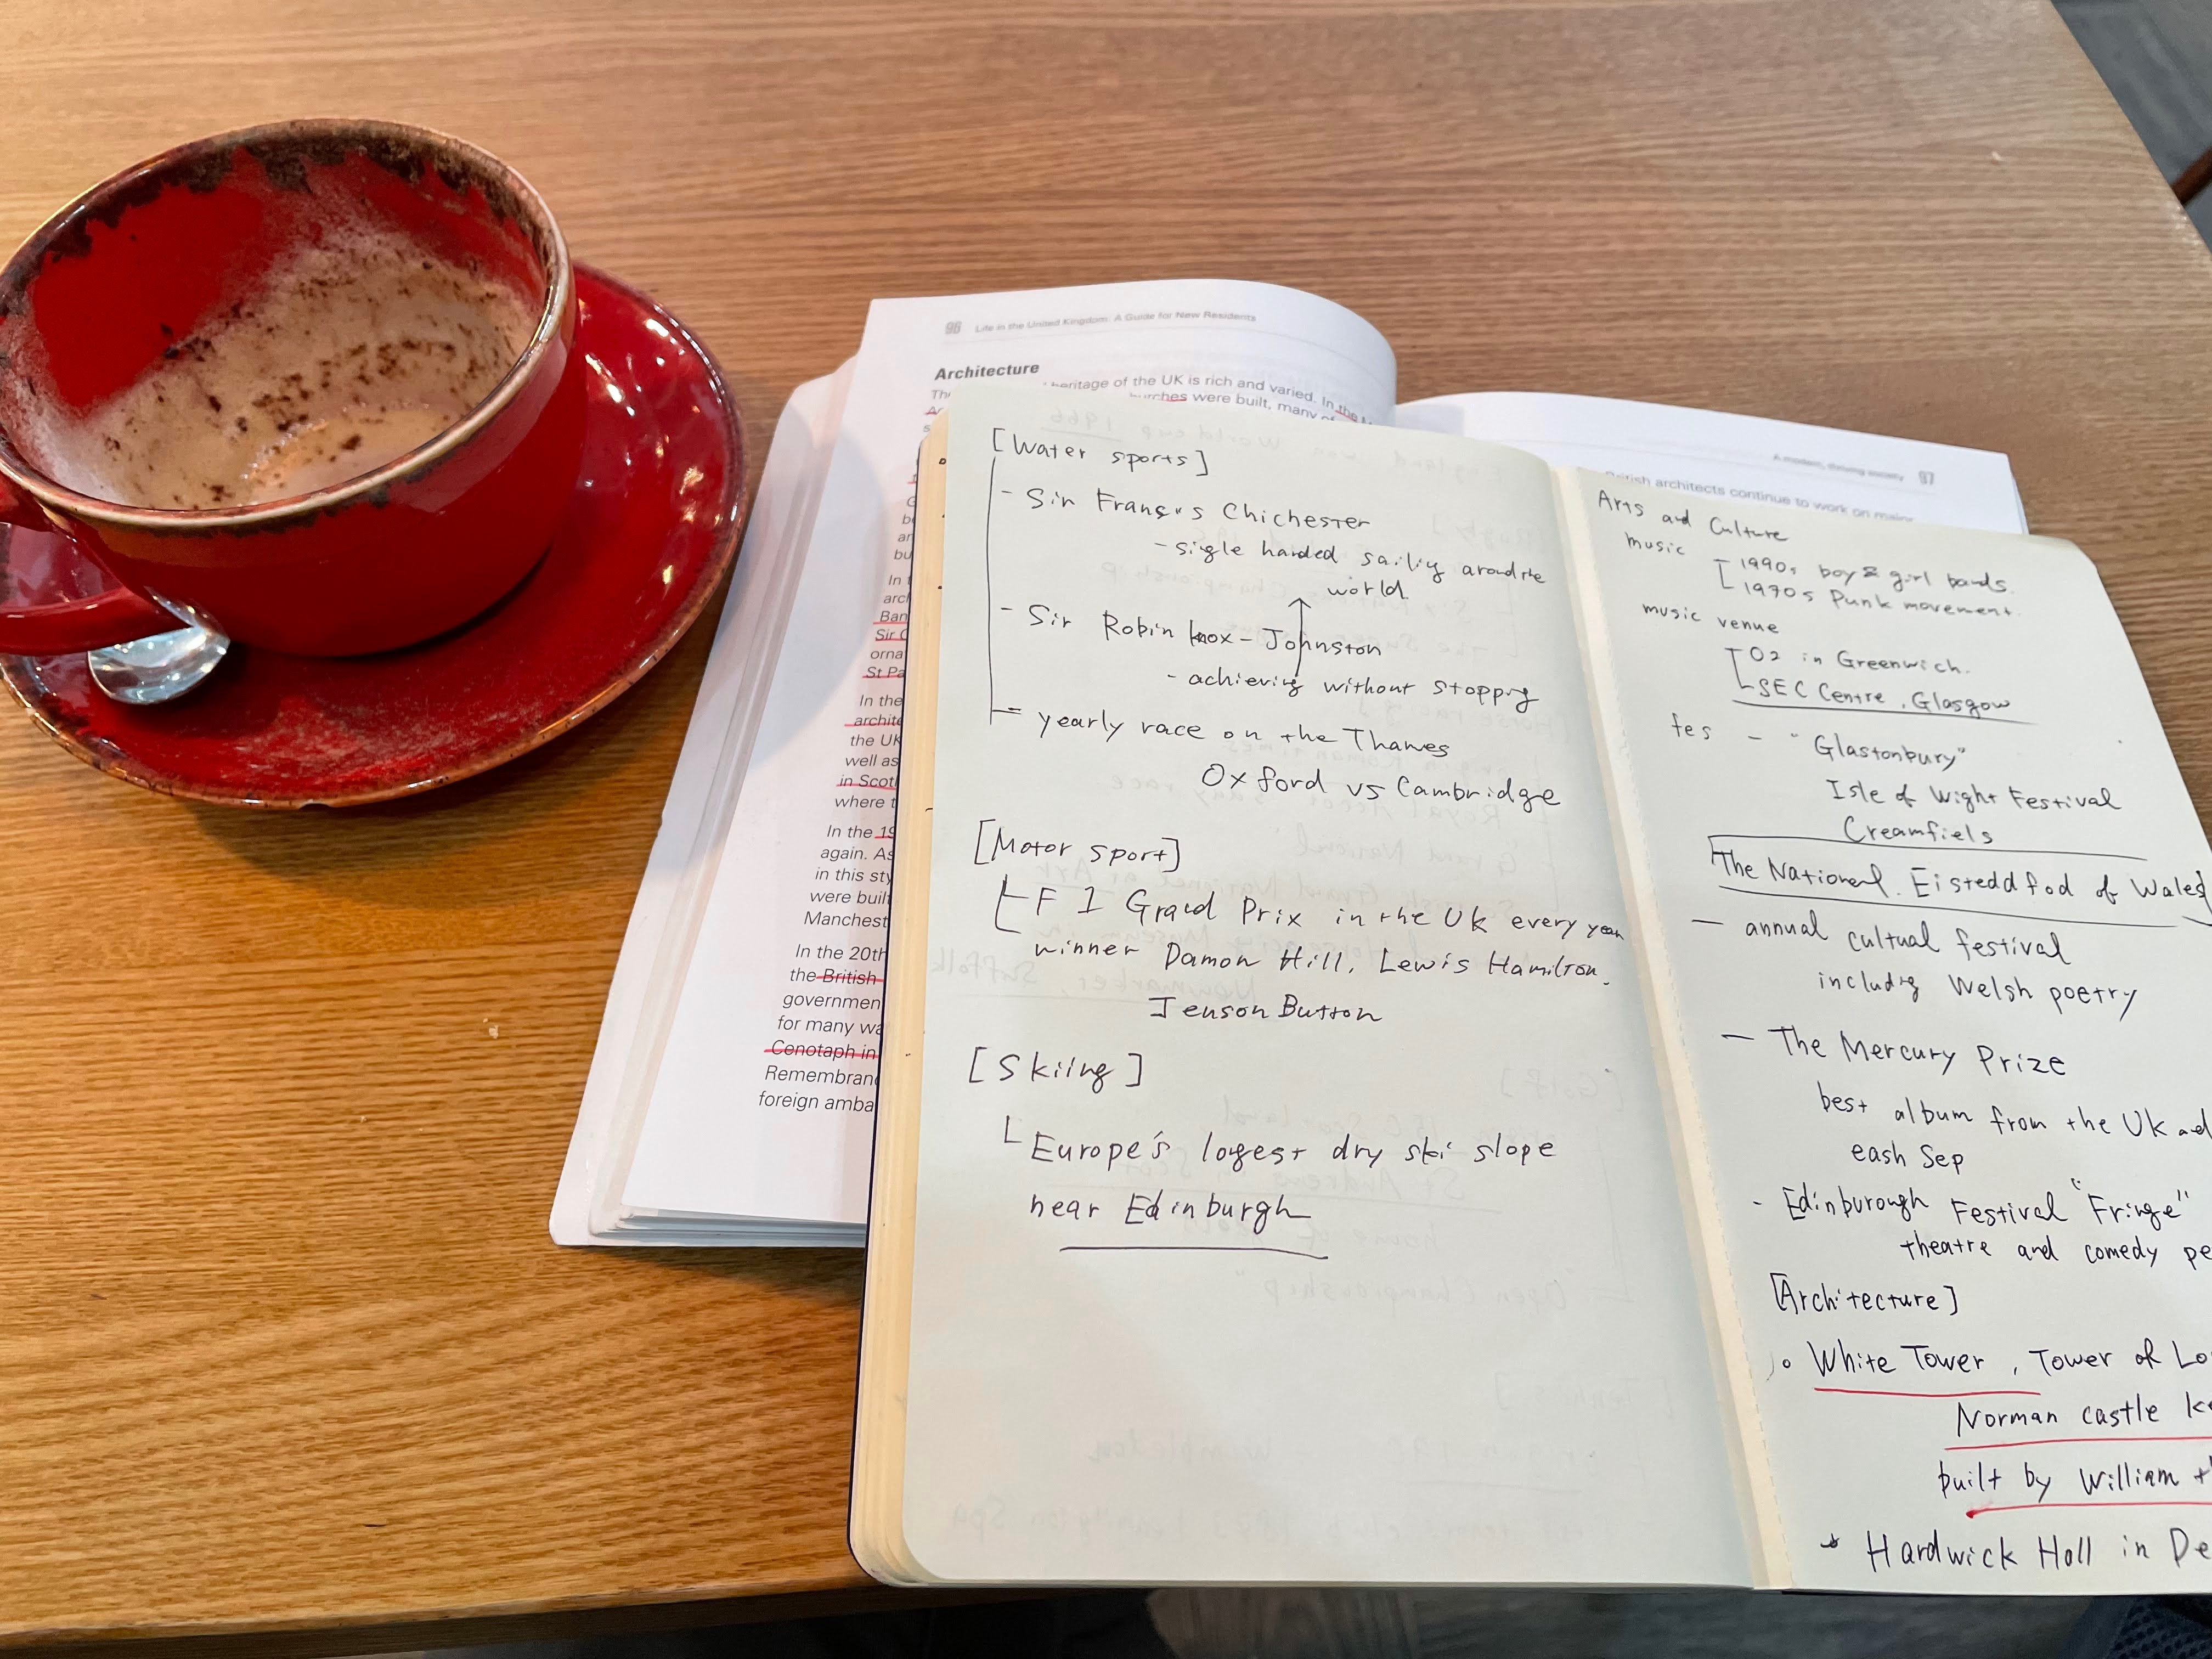 96 Life in the United Kingdom: A Guide for New Residents
Architecture
heritage of the UK is rich and varied. In the
were built, many of
In the
archite
the UK
well as
in Scotl
where t
In the 19
again. As
in this sty
were built
Manchest
In the 20th
the British
governmen
for many wa
Cenotaph in
Remembranc
foreign amba
A modern, thriving society 97
British architects continue to work on major
[Water sports]
- Sir Francis Chichester
- sigle handed sailig around the
world.
- Sir Robin Knox-Johnston
- achievig without stoppig
- yearly race on the Thames
Oxford vs Cambridge
[Motor sport]
F 1 Grand Prix in the UK every year
winner Damon Hill, Lewis Hamilton.
Jenson Button
[Skiing]
Europe's logest dry ski slope
near Edinburgh
Arts and Culture
music
1990s boy & girl bands.
1970s Punk movement.
music venue
O2 in Greenwich.
SEC Centre, Glasgow
fes - "Glastonbury"
Isle of Wight Festival
Creamfiels
The National Eisteddfod of Wales
- annual cultual festival
includig Welsh poetry
- The Mercury Prize
best album from the UK ad
eash Sep
- Edinburough Festival "Fringe"
theatre and comedy pe
[Architecture]
White Tower, Tower of Lo
Norman castle ke
built by William th
Hardwick Hall in De